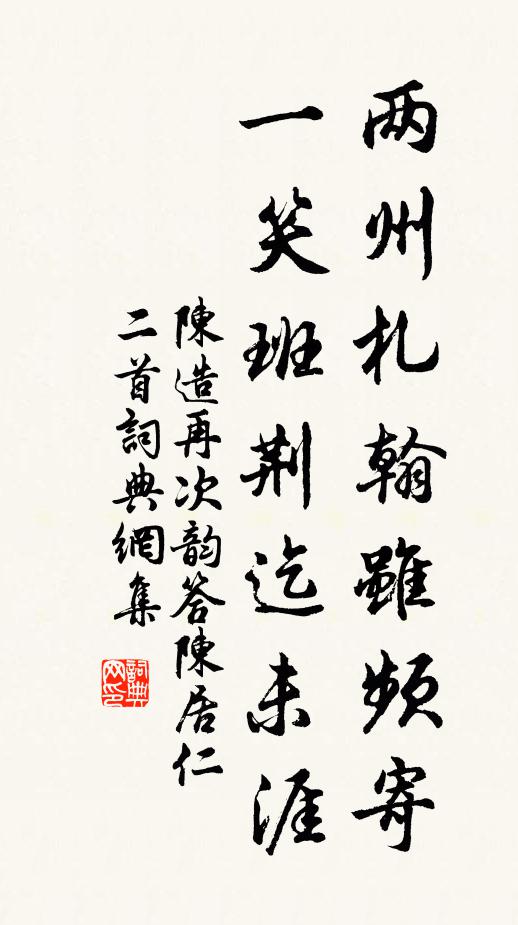 两州札翰雖頻寄
一笑班荆迄未涯
陳造再次韵答陳居仁
二首詞典網集
詞典网印